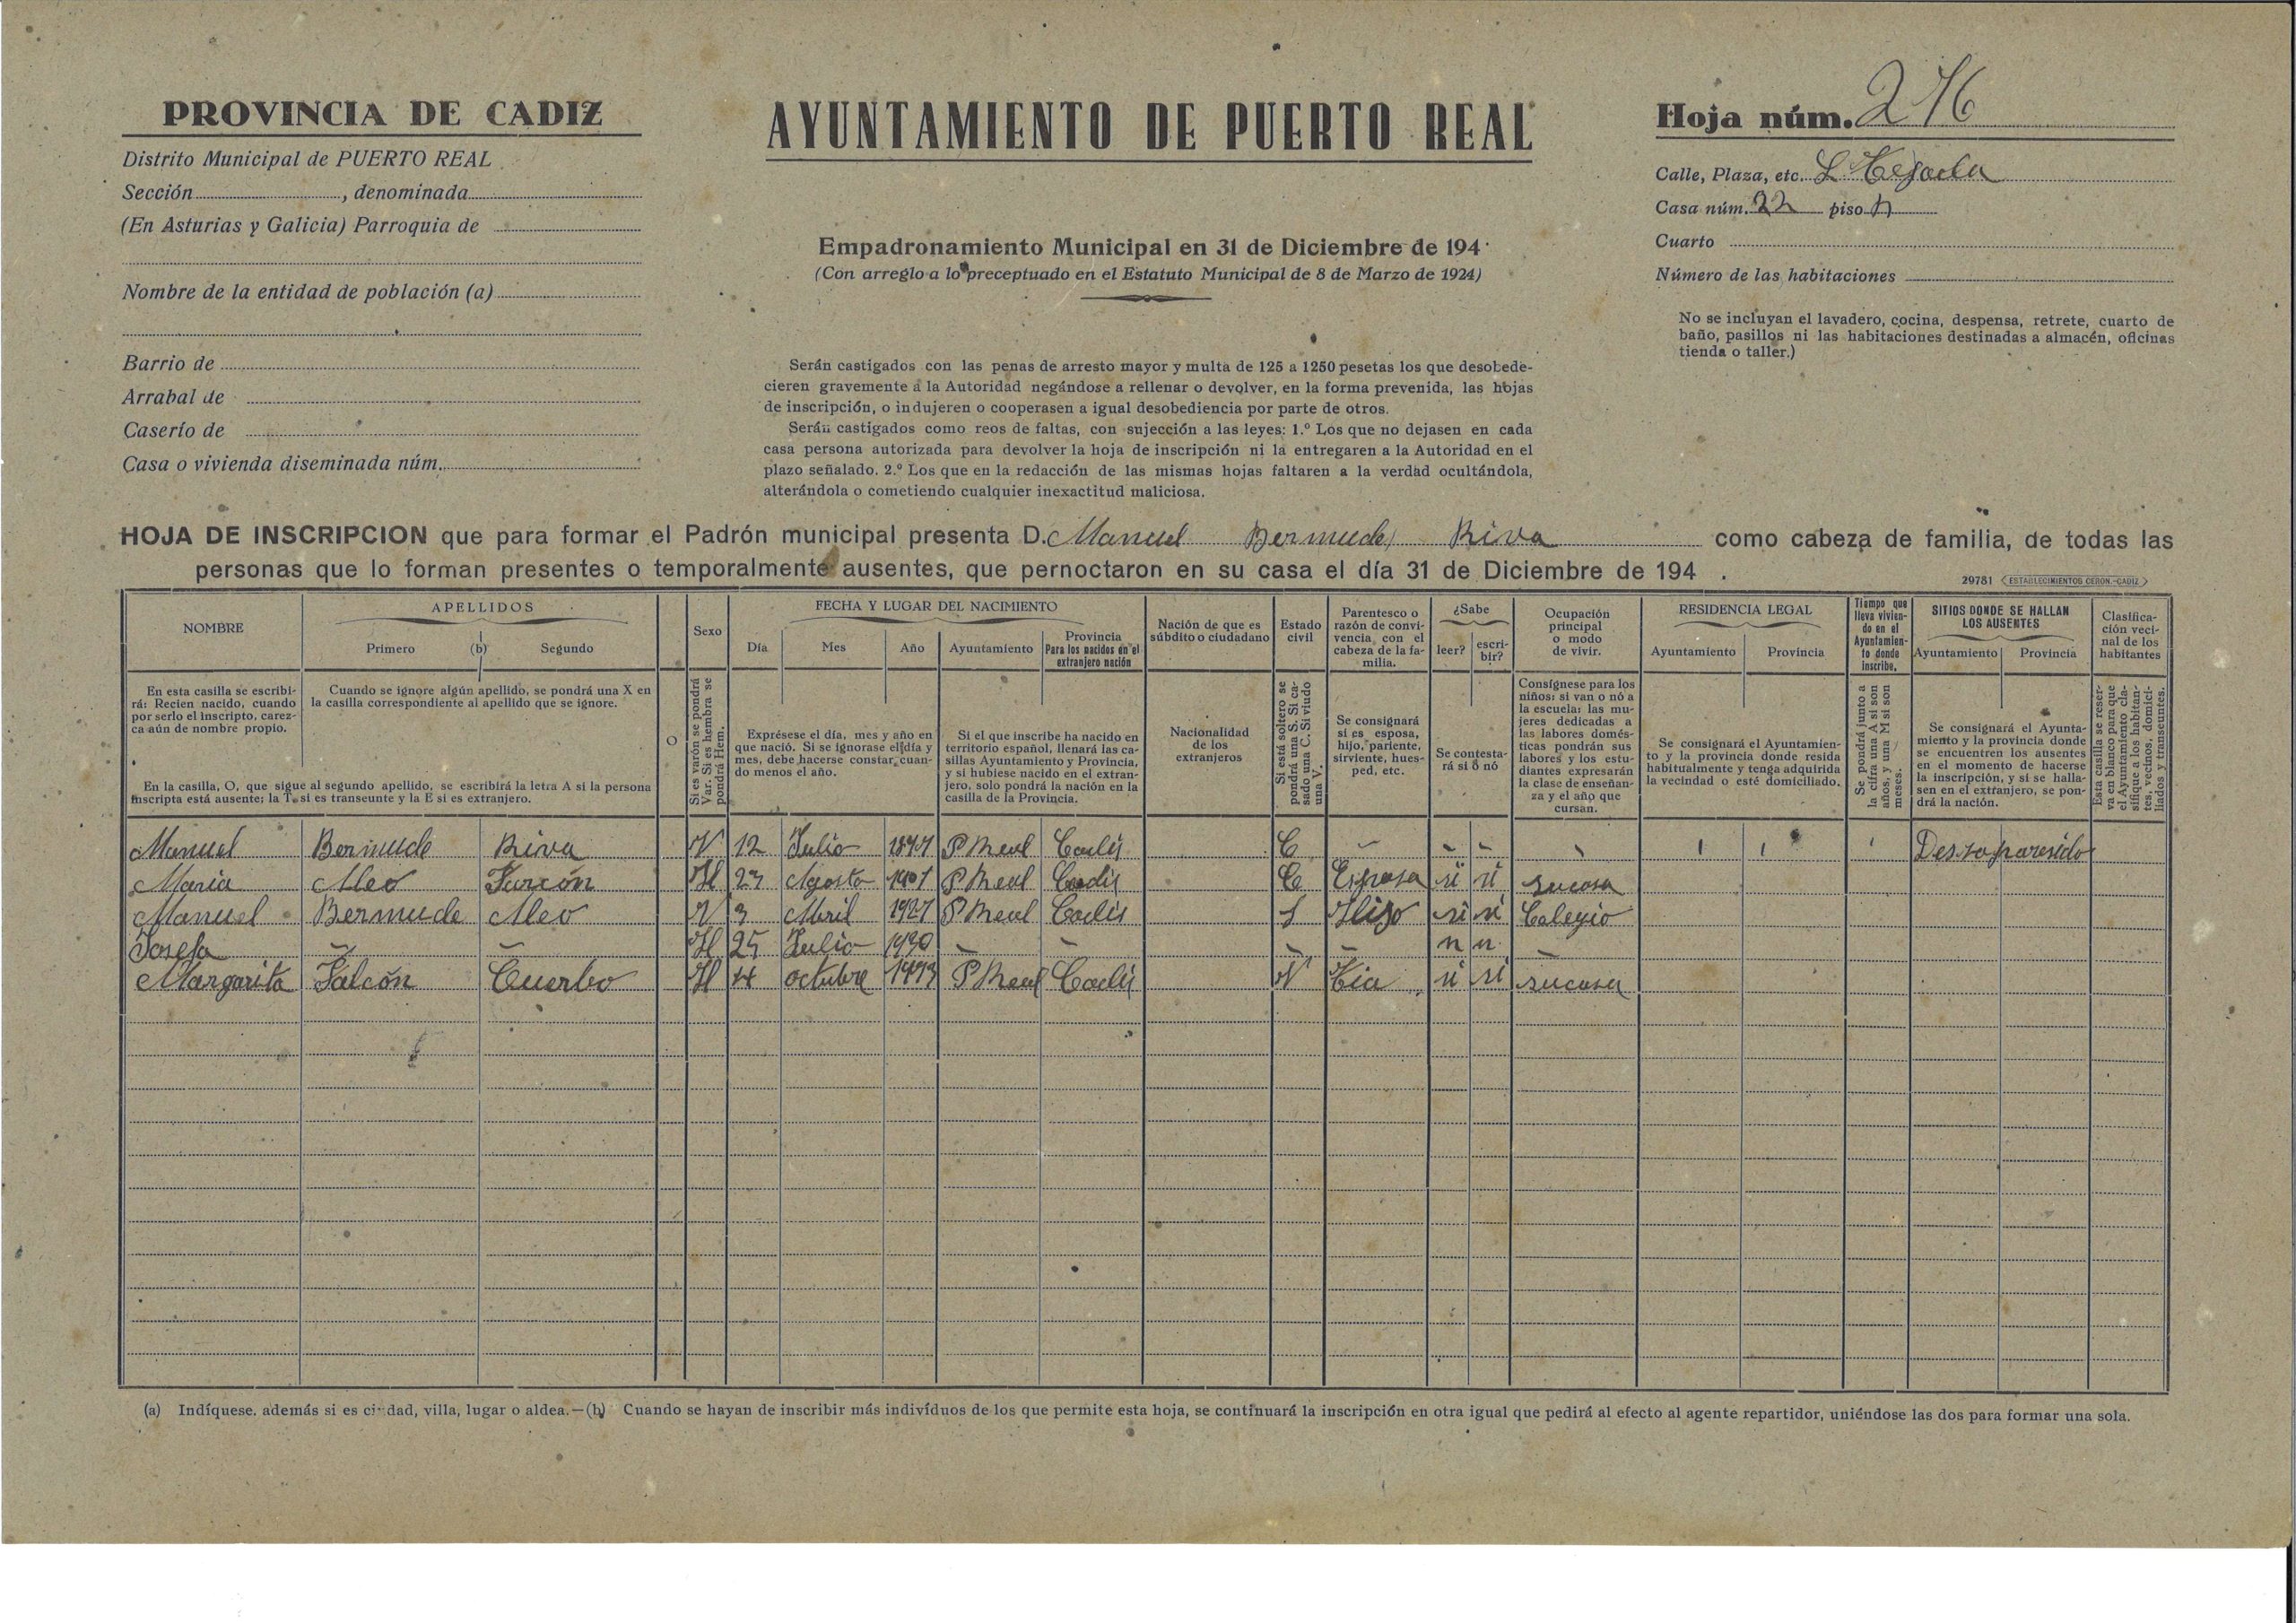 PROVINCIA DE CADIZ
Distrito Municipal de PUERTO REAL
Sección , denominada
(En Asturias y Galicia) Parroquia de
Nombre de la entidad de población (a)
Barrio de
Arrabal de
Caserío de
Casa o vivienda diseminada núm.
AYUNTAMIENTO DE PUERTO REAL
Empadronamiento Municipal en 31 de Diciembre de 194
(Con arreglo a lo preceptuado en el Estatuto Municipal de 8 de Marzo de 1924)
Serán castigados con las penas de arresto mayor y multa de 125 a 1250 pesetas los que desobede-
cieren gravemente a la Autoridad negándose a rellenar o devolver, en la forma prevenida, las hojas
de inscripción, o indujeren o cooperasen a igual desobediencia por parte de otros.
Serán castigados como reos de faltas, con sujección a las leyes: 1.º Los que no dejasen en cada
casa persona autorizada para devolver la hoja de inscripción ni la entregaren a la Autoridad en el
plazo señalado. 2.º Los que en la redacción de las mismas hojas faltaren a la verdad ocultándola,
alterándola o cometiendo cualquier inexactitud maliciosa.
Hoja núm. 276
Calle, Plaza, etc. L Tejada
Casa núm. 22 piso
Cuarto
Número de las habitaciones
No se incluyan el lavadero, cocina, despensa, retrete, cuarto de
baño, pasillos ni las habitaciones destinadas a almacén, oficinas
tienda o taller.)
HOJA DE INSCRIPCION que para formar el Padrón municipal presenta D. Manuel Bermude Riva como cabeza de familia, de todas las
personas que lo forman presentes o temporalmente ausentes, que pernoctaron en su casa el día 31 de Diciembre de 194 .
29781 ESTABLECIMIENTOS CERON.-CADIZ
NOMBRE
APELLIDOS
Primero (b) Segundo
O
Sexo
FECHA Y LUGAR DEL NACIMIENTO
Día Mes Año Ayuntamiento
Provincia
Para los nacidos en el
extranjero nación
Nación de que es
súbdito o ciudadano
Estado
civil
Parentesco o
razón de convi-
vencia con el
cabeza de la fa-
milia.
¿Sabe
leer? escri-
bir?
Ocupación
principal
o modo
de vivir.
RESIDENCIA LEGAL
Ayuntamiento Provincia
Tiempo que
lleva vivien-
do en el
Ayuntamien-
to donde
inscribe.
SITIOS DONDE SE HALLAN
LOS AUSENTES
Ayuntamiento Provincia
Clasifica-
ción veci-
nal de los
habitantes
En esta casilla se escribi-
rá: Recien nacido, cuando
por serlo el inscripto, carez-
ca aún de nombre propio.
Cuando se ignore algún apellido, se pondrá una X en
la casilla correspondiente al apellido que se ignore.
En la casilla, O, que sigue al segundo apellido, se escribirá la letra A si la persona
inscripta está ausente; la T. si es transeunte y la E si es extranjero.
Si es varón se pondrá
Var. Si es hembra se
pondrá Hem.
Exprésese el día, mes y año en
que nació. Si se ignorase el día y
mes, debe hacerse constar cuan-
do menos el año.
Si el que inscribe ha nacido en
territorio español, llenará las ca-
sillas Ayuntamiento y Provincia,
y si hubiese nacido en el extran-
jero, solo pondrá la nación en la
casilla de la Provincia.
Nacionalidad
de los
extranjeros
Si está soltero se
pondrá una S. Si ca-
sado una C. Si viudo
una V.
Se consignará
si es esposa,
hijo, pariente,
sirviente, hues-
ped, etc.
Se contesta-
rá si ó nó
Consígnese para los
niños: si van o nó a
la escuela: las mu-
jeres dedicadas a
las labores domés-
ticas pondrán sus
labores y los estu-
diantes expresarán
la clase de enseñan-
za y el año que
cursan.
Se consignará el Ayuntamien-
to y la provincia donde resida
habitualmente y tenga adquirida
la vecindad o esté domiciliado.
Se pondrá junto a
la cifra una A si son
años, y una M si son
meses.
Se consignará el Ayunta-
miento y la provincia donde
se encuentren los ausentes
en el momento de hacerse
la inscripción, y si se halla-
sen en el extranjero, se pon-
drá la nación.
Esta casilla se reser-
va en blanco para que
el Ayuntamiento cla-
sifique a los habitan-
tes, vecinos, domici-
liados y transeuntes.
Manuel Bermude Riva V 12 Julio P Real Cadis C Desaparesido
Maria Meo H Agosto P Real Cadis C Esposa si si sucasa
Manuel Bermude Meo V 3 Abril 1927 P Real Cadis S Hijo si si Colegio
Josefa H 25 Julio 1930 n n
Margarita Falcón Cuerbo H octubre P Real Cadis V Tia si si sucasa
(a) Indíquese. además si es ciudad, villa, lugar o aldea.—(b) Cuando se hayan de inscribir más indivíduos de los que permite esta hoja, se continuará la inscripción en otra igual que pedirá al efecto al agente repartidor, uniéndose las dos para formar una sola.